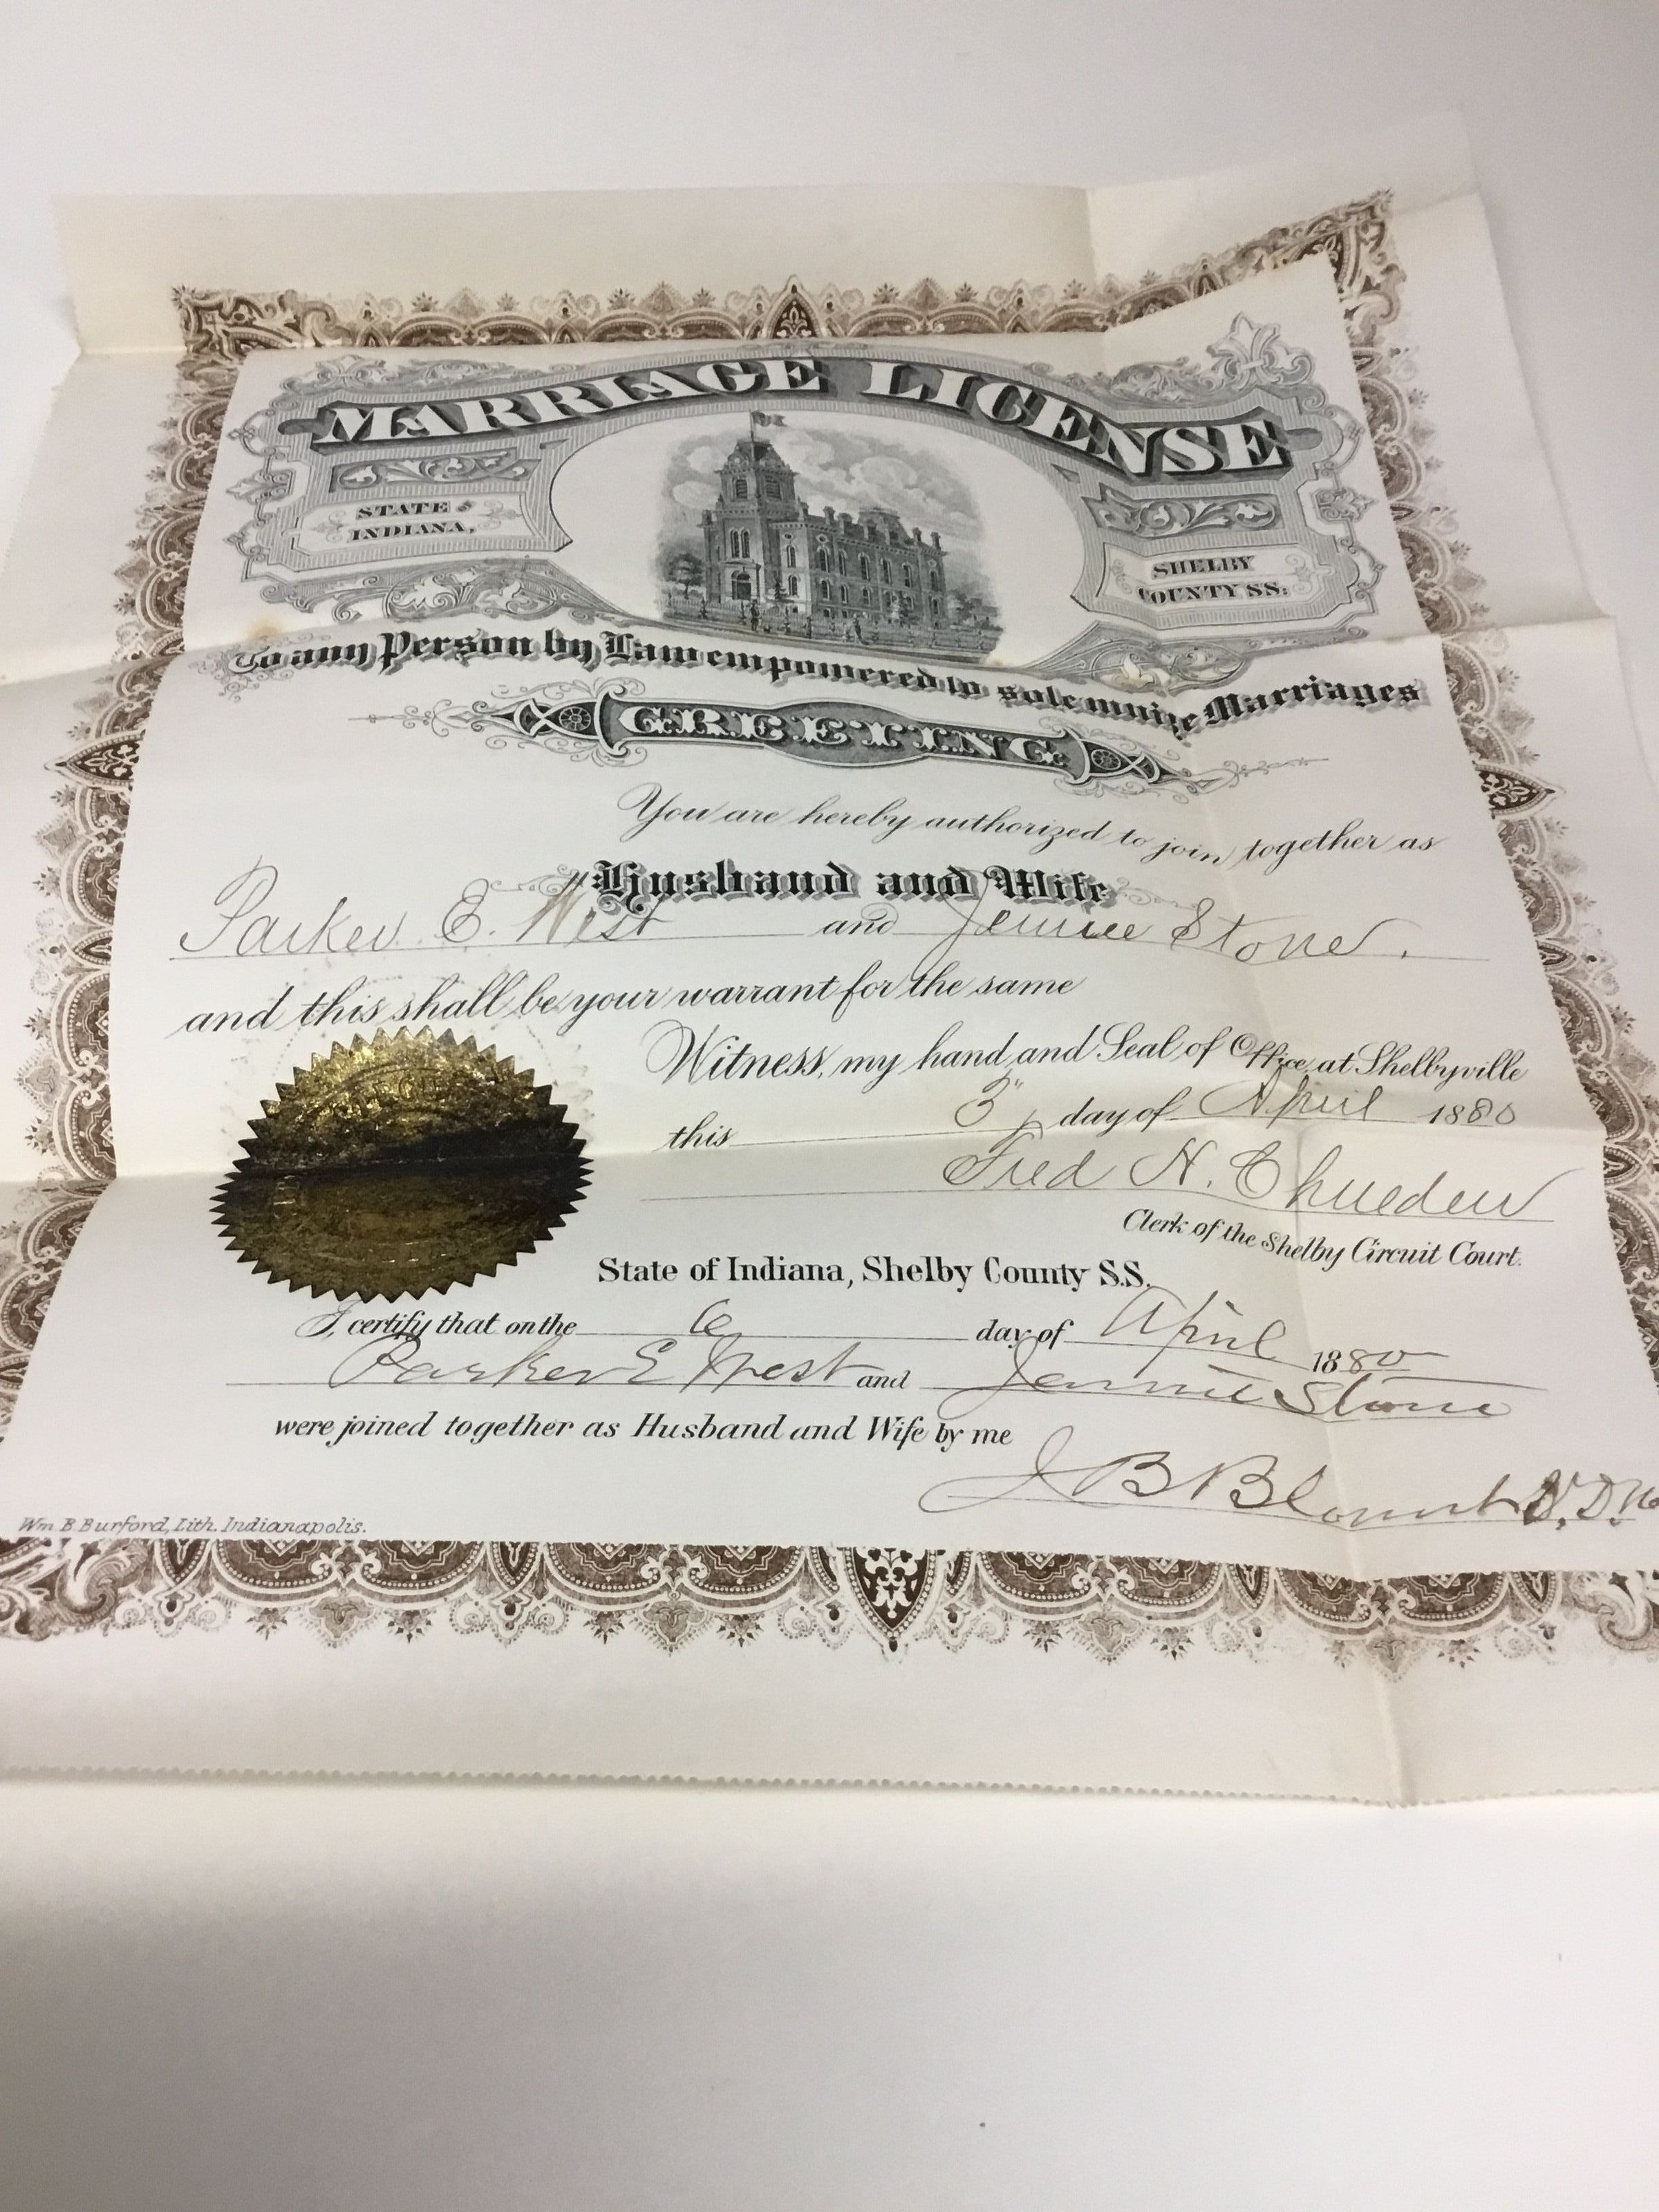 MARRIAGE LICENSE
STATE OF
INDIANA,
SHELBY
COUNTY SS:
To any Person by Law empowered to solemnize Marriages
GREETING
You are hereby authorized to join together as
Husband and Wife
Parker E. West and Jennie Stone.
and this shall be your warrant for the same
Witness, my hand and Seal of Office at Shelbyville
this 3" day of April 1880
Fred H. Chueden
Clerk of the Shelby Circuit Court.
State of Indiana, Shelby County S.S.
I, certify that on the 6 day of April 1880
Parker E West and Jennie Stone
were joined together as Husband and Wife by me
J B Blount
Wm. B. Burford, Lith. Indianapolis.